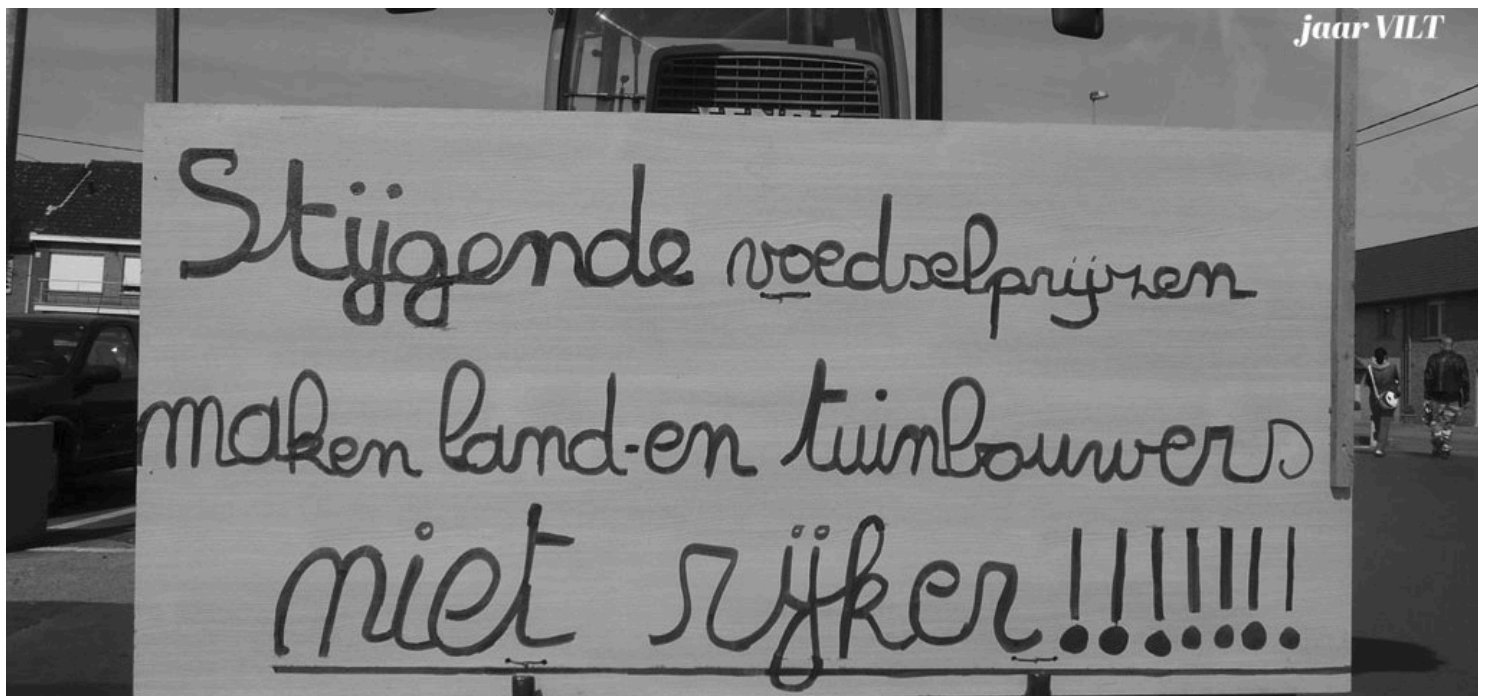 jaar VILT
Stijgende voedselprijzen
maken land-en tuinbouwers
niet rijker!!!!!!!